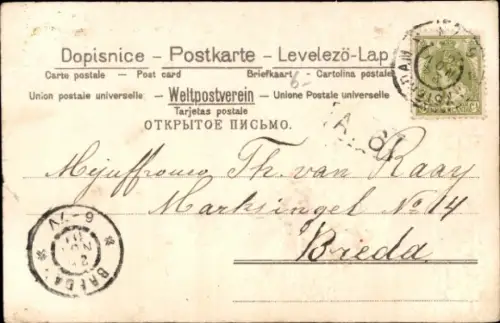 Dopisnice – Postkarte – Levelező-Lap
Carte postale – Post card Briefkaart – Cartolina postale
Union postale universelle – Weltpostverein – Unione Postale universale
Tarjetas postale
ОТКРЫТОЕ ПИСЬМО.
6-
Mejuffrouw Th. van Raay
Marksingel No 14
Breda.
6-7V
2
NOV
BREDA